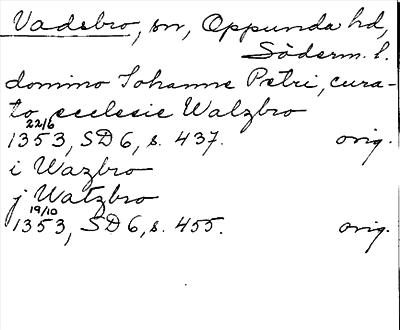 Vadsbro, sn, Oppunda hd,
Söderm. l.
domino Johanne Petri, cura-
to ecclesie Walzbro
22/6
1353, SD 6, s. 437. orig.
i Wazbro
j Watzbro
19/10
1353, SD 6, s. 455. orig.